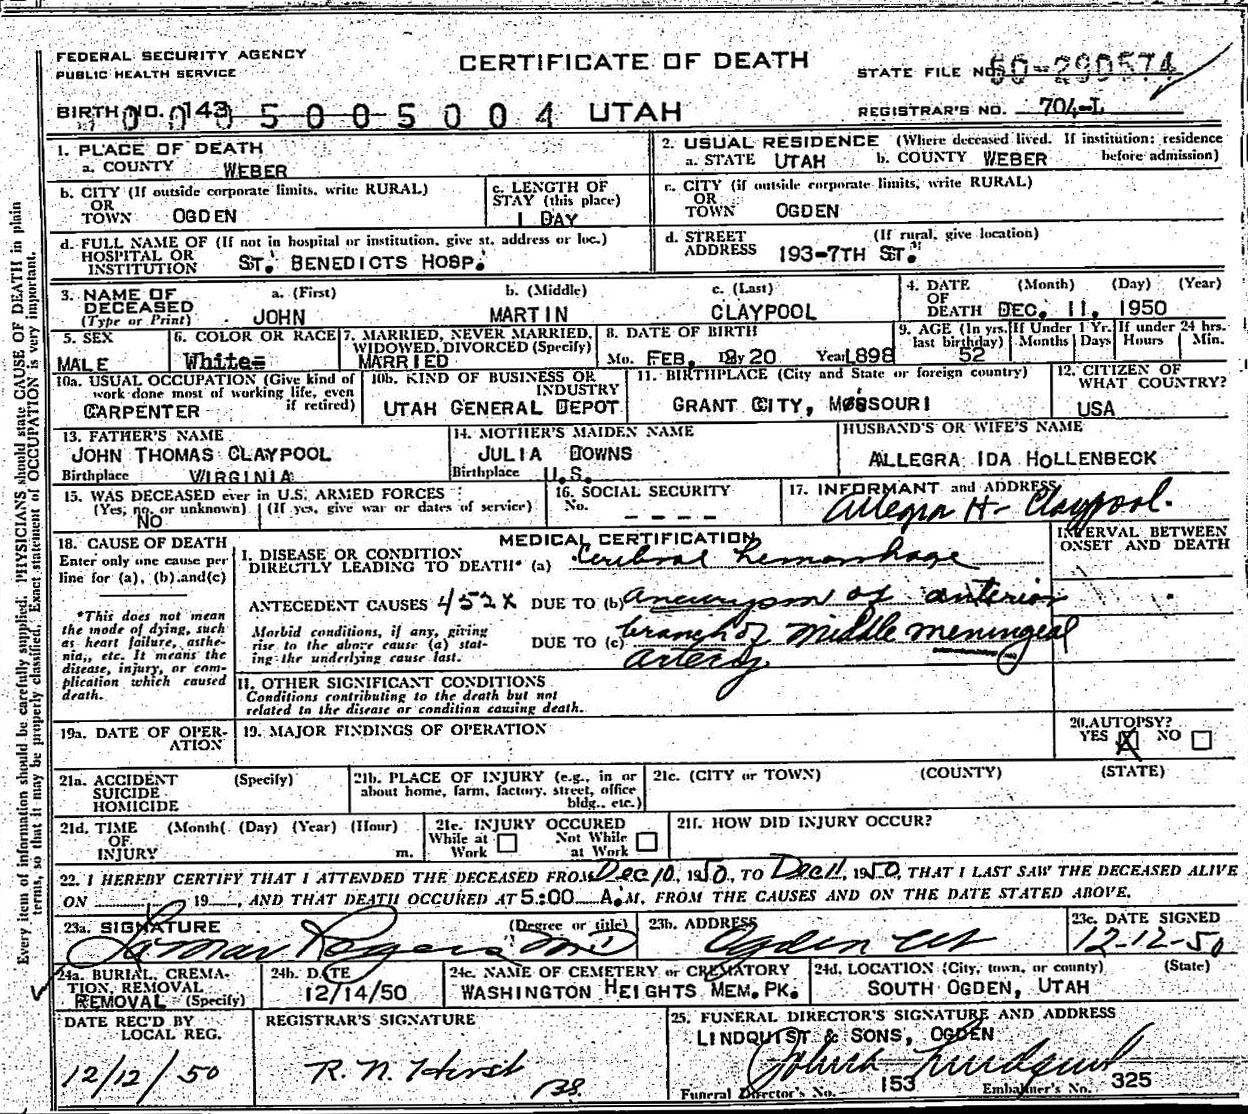 FEDERAL SECURITY AGENCY
PUBLIC HEALTH SERVICE
CERTIFICATE OF DEATH
STATE FILE NO. 50-290574
BIRTH NO. 143
0005005004 UTAH
REGISTRAR'S NO. 704-L
1. PLACE OF DEATH
a. COUNTY WEBER
2. USUAL RESIDENCE (Where deceased lived. If institution: residence before admission)
a. STATE UTAH b. COUNTY WEBER
b. CITY (If outside corporate limits, write RURAL)
OR
TOWN OGDEN
c. LENGTH OF
STAY (this place)
1 DAY
c. CITY (if outside corporate limits, write RURAL)
OR
TOWN OGDEN
d. FULL NAME OF (If not in hospital or institution, give st. address or loc.)
HOSPITAL OR
INSTITUTION ST. BENEDICTS HOSP.
d. STREET (If rural, give location)
ADDRESS 193-7TH ST.
3. NAME OF DECEASED
(Type or Print)
a. (First) b. (Middle) c. (Last)
JOHN MARTIN CLAYPOOL
4. DATE (Month) (Day) (Year)
OF
DEATH DEC. 11, 1950
5. SEX
MALE
6. COLOR OR RACE
White
7. MARRIED, NEVER MARRIED,
WIDOWED, DIVORCED (Specify)
MARRIED
8. DATE OF BIRTH
Mo. FEB. Day 20 Year 1898
9. AGE (In yrs. last birthday) 52
If Under 1 Yr. Months Days
If under 24 hrs. Hours Min.
10a. USUAL OCCUPATION (Give kind of
work done most of working life, even
if retired)
CARPENTER
10b. KIND OF BUSINESS OR
INDUSTRY
UTAH GENERAL DEPOT
11. BIRTHPLACE (City and State or foreign country)
GRANT CITY, MISSOURI
12. CITIZEN OF
WHAT COUNTRY?
USA
13. FATHER'S NAME
JOHN THOMAS CLAYPOOL
Birthplace VIRGINIA
14. MOTHER'S MAIDEN NAME
JULIA DOWNS
Birthplace U.S.
HUSBAND'S OR WIFE'S NAME
ALLEGRA IDA HOLLENBECK
15. WAS DECEASED ever in U.S. ARMED FORCES
(Yes, no, or unknown) (If yes, give war or dates of service)
NO
16. SOCIAL SECURITY
No. ----
17. INFORMANT and ADDRESS
Allegra H. Claypool.
18. CAUSE OF DEATH
Enter only one cause per
line for (a), (b) and (c)
*This does not mean
the mode of dying, such
as heart failure, asthe-
nia, etc. It means the
disease, injury, or com-
plication which caused
death.
MEDICAL CERTIFICATION
INTERVAL BETWEEN
ONSET AND DEATH
I. DISEASE OR CONDITION
DIRECTLY LEADING TO DEATH* (a) Cerebral hemorrhage
ANTECEDENT CAUSES 452X DUE TO (b) aneurysm of anterior
Morbid conditions, if any, giving
rise to the above cause (a) stat-
ing the underlying cause last.
DUE TO (c) branch of middle meningeal
artery
II. OTHER SIGNIFICANT CONDITIONS
Conditions contributing to the death but not
related to the disease or condition causing death.
19a. DATE OF OPER-
ATION
19. MAJOR FINDINGS OF OPERATION
20. AUTOPSY?
YES X NO
21a. ACCIDENT (Specify)
SUICIDE
HOMICIDE
21b. PLACE OF INJURY (e.g., in or
about home, farm, factory, street, office
bldg., etc.)
21c. (CITY or TOWN) (COUNTY) (STATE)
21d. TIME (Month( (Day) (Year) (Hour)
OF
INJURY m.
21e. INJURY OCCURED
While at Work Not While at Work
21f. HOW DID INJURY OCCUR?
22. I HEREBY CERTIFY THAT I ATTENDED THE DECEASED FROM Dec 10, 1950, TO Dec 11, 1950, THAT I LAST SAW THE DECEASED ALIVE
ON 19 , AND THAT DEATH OCCURED AT 5:00 A.M, FROM THE CAUSES AND ON THE DATE STATED ABOVE.
23a. SIGNATURE (Degree or title)
Rogers MD
23b. ADDRESS
Ogden Ut
23c. DATE SIGNED
12-12-50
24a. BURIAL, CREMA-
TION, REMOVAL
REMOVAL (Specify)
24b. DATE
12/14/50
24c. NAME OF CEMETERY or CREMATORY
WASHINGTON HEIGHTS MEM. PK.
24d. LOCATION (City, town, or county) (State)
SOUTH OGDEN, UTAH
DATE REC'D BY
LOCAL REG.
12/12/50
REGISTRAR'S SIGNATURE
R. N. Hirst
25. FUNERAL DIRECTOR'S SIGNATURE AND ADDRESS
LINDQUIST & SONS, OGDEN
Funeral Director's No. 153 Embalmer's No. 325
Every item of information should be carefully supplied. PHYSICIANS should state CAUSE OF DEATH in plain
terms, so that it may be properly classified. Exact statement of OCCUPATION is very important.